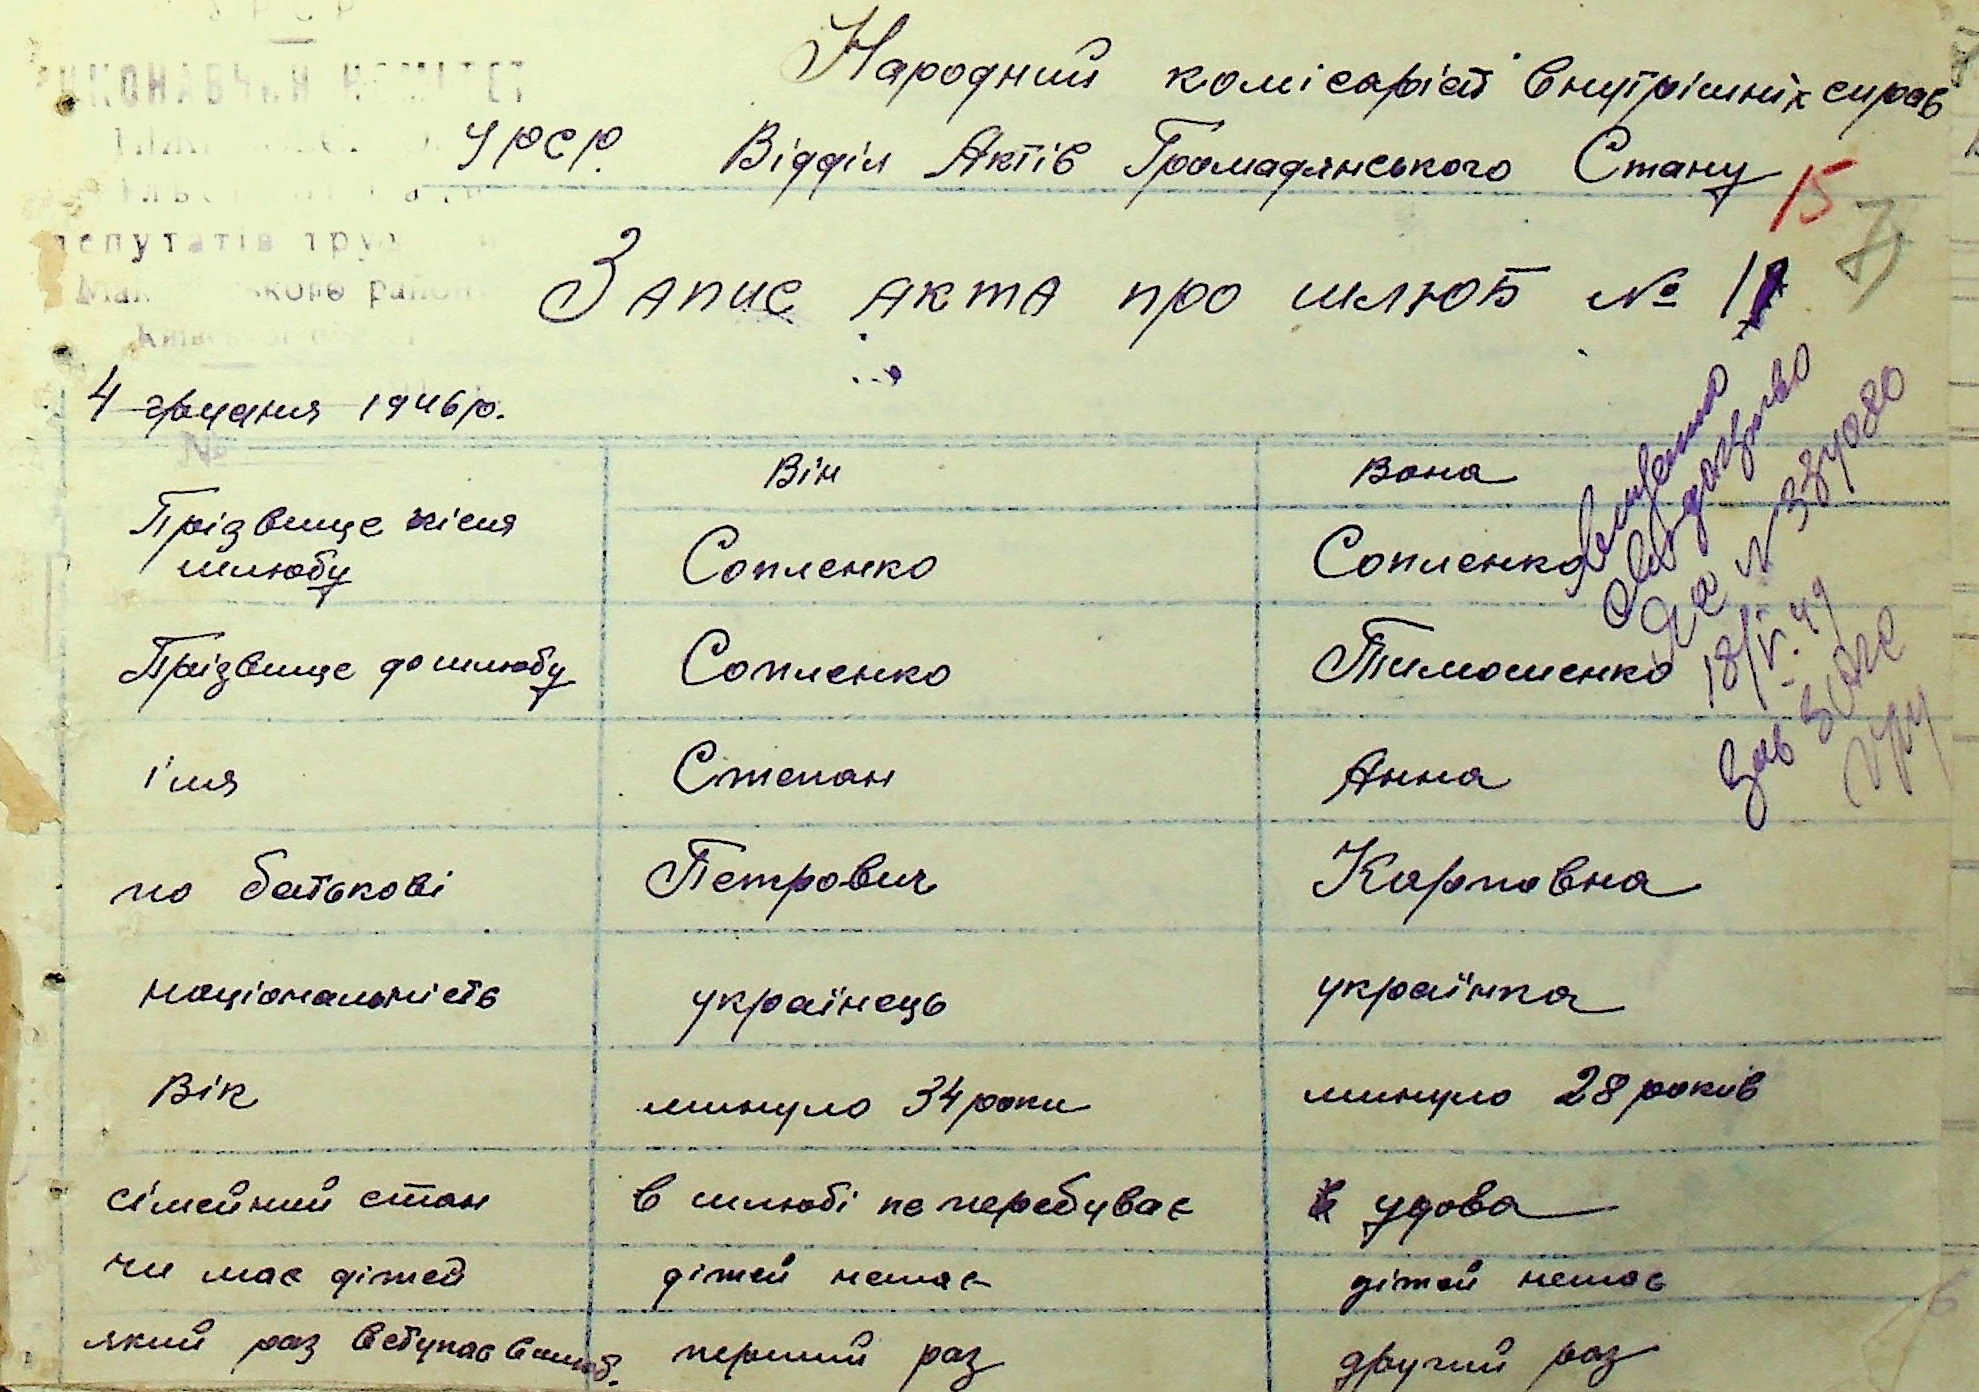 УРСР
ВИКОНАВЧИЙ КОМІТЕТ
депутатів
району
Народний комісаріят внутрішніх справ
УРСР. Відділ Актів Громадянського Стану
15
Запис акта про шлюб № 1
4 грудня 1946 р.
№
Він Вона
Прізвище після
шлюбу Сопленко Сопленко
Прізвище до шлюбу Сопленко Тимошенко
імя Степан Анна
по батькові Петрович Карповна
національність українець українка
Вік минуло 34 роки минуло 28 років
сімейний стан в шлюбі не перебуває удова
чи має дітей дітей немає дітей немає
який раз вступає в шлюб. перший раз другий раз
18/V.49
Зав